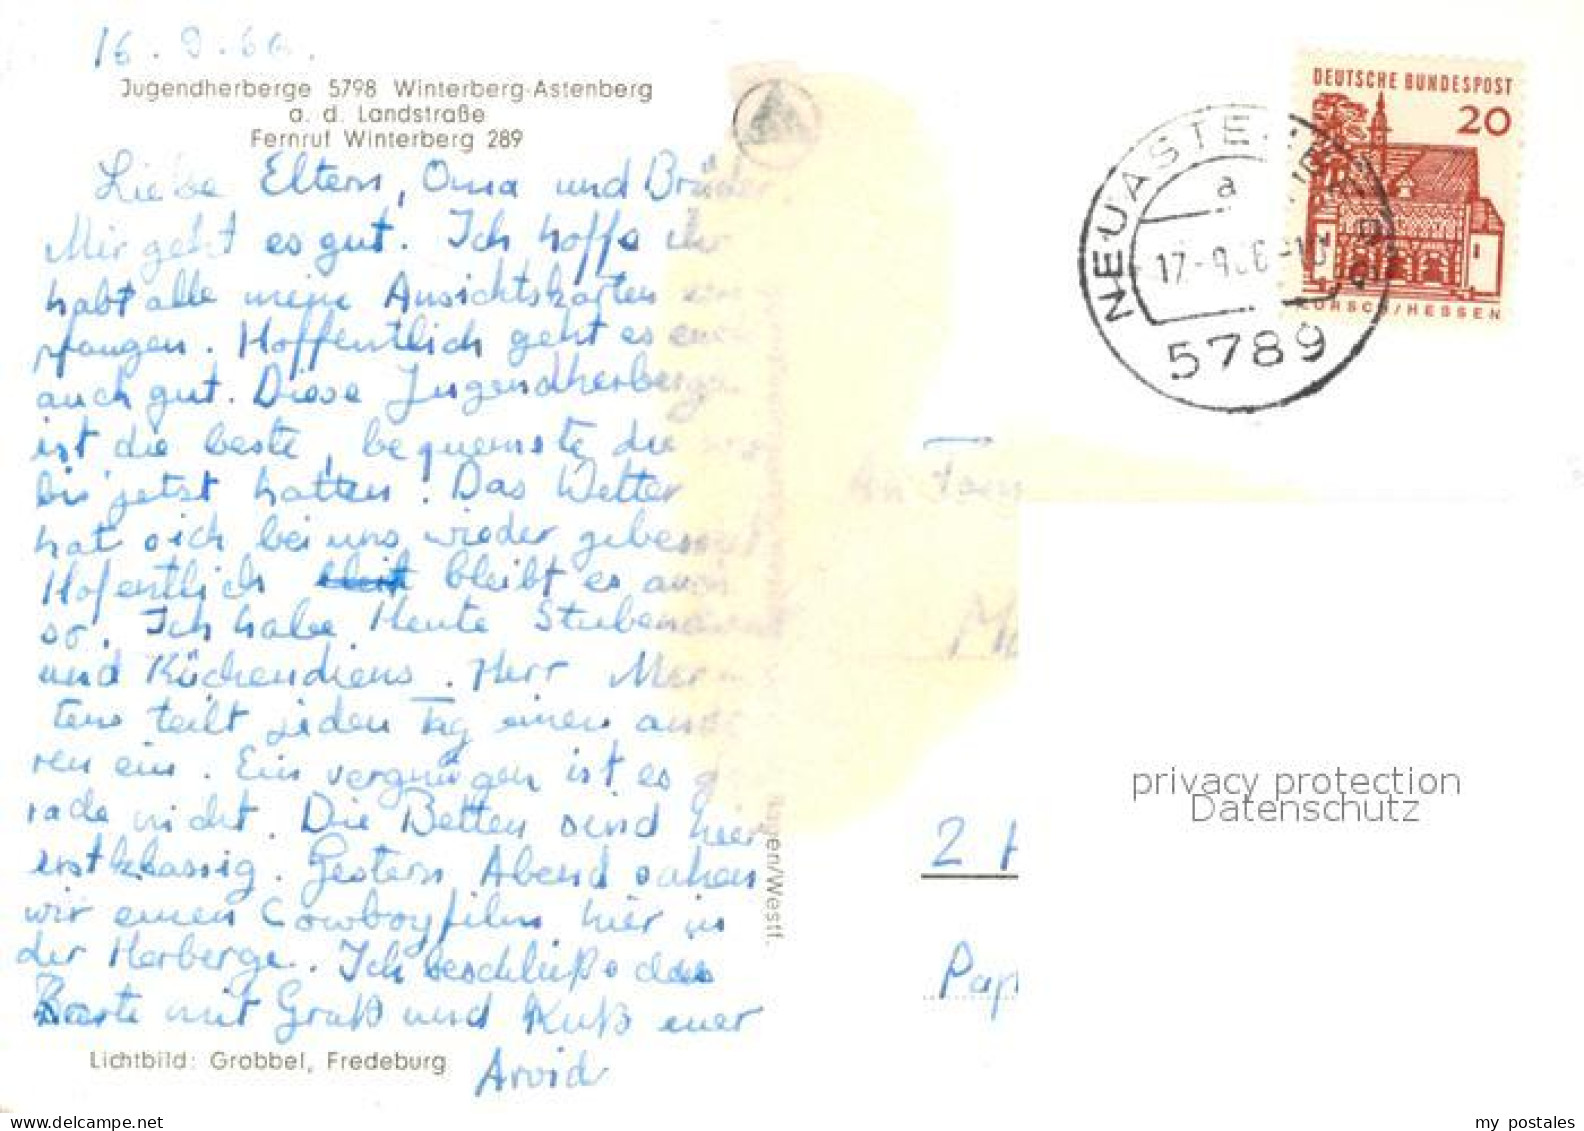 16.9.66.
Jugendherberge 5798 Winterberg-Astenberg
a. d. Landstraße
Fernruf Winterberg 289
Liebe Eltern, Oma und Brüder.
Mir geht es gut. Ich hoffe ihr
habt alle meine Ansichtskarten em-
pfangen. Hoffentlich geht es euch
auch gut. Diese Jugendherberge
ist die beste, bequemste die wir
bis jetzt hatten. Das Wetter
hat sich bei uns wieder gebessert
Hofentlich bleibt es auch
so. Ich habe Heute Stubendienst
und Küchendiens. Herr Mer-
tens teilt jeden Tag einen ande
ren ein. Ein vergnügen ist es ge
rade nicht. Die Betten sind hier
erstklassig. Gestern Abend sahen
wir einen Cowboyfilm hier in
der Herberge. Ich beschließe das
Karte mit Gruß und Kuß euer
Arvid
Lichtbild: Grobbel, Fredeburg
Hagen/Westf.
DEUTSCHE BUNDESPOST
20
LORSCH/HESSEN
NEUASTE
a
17-9.66-10
5789
An Fam
2 H
Pap
privacy protection
Datenschutz
my postales